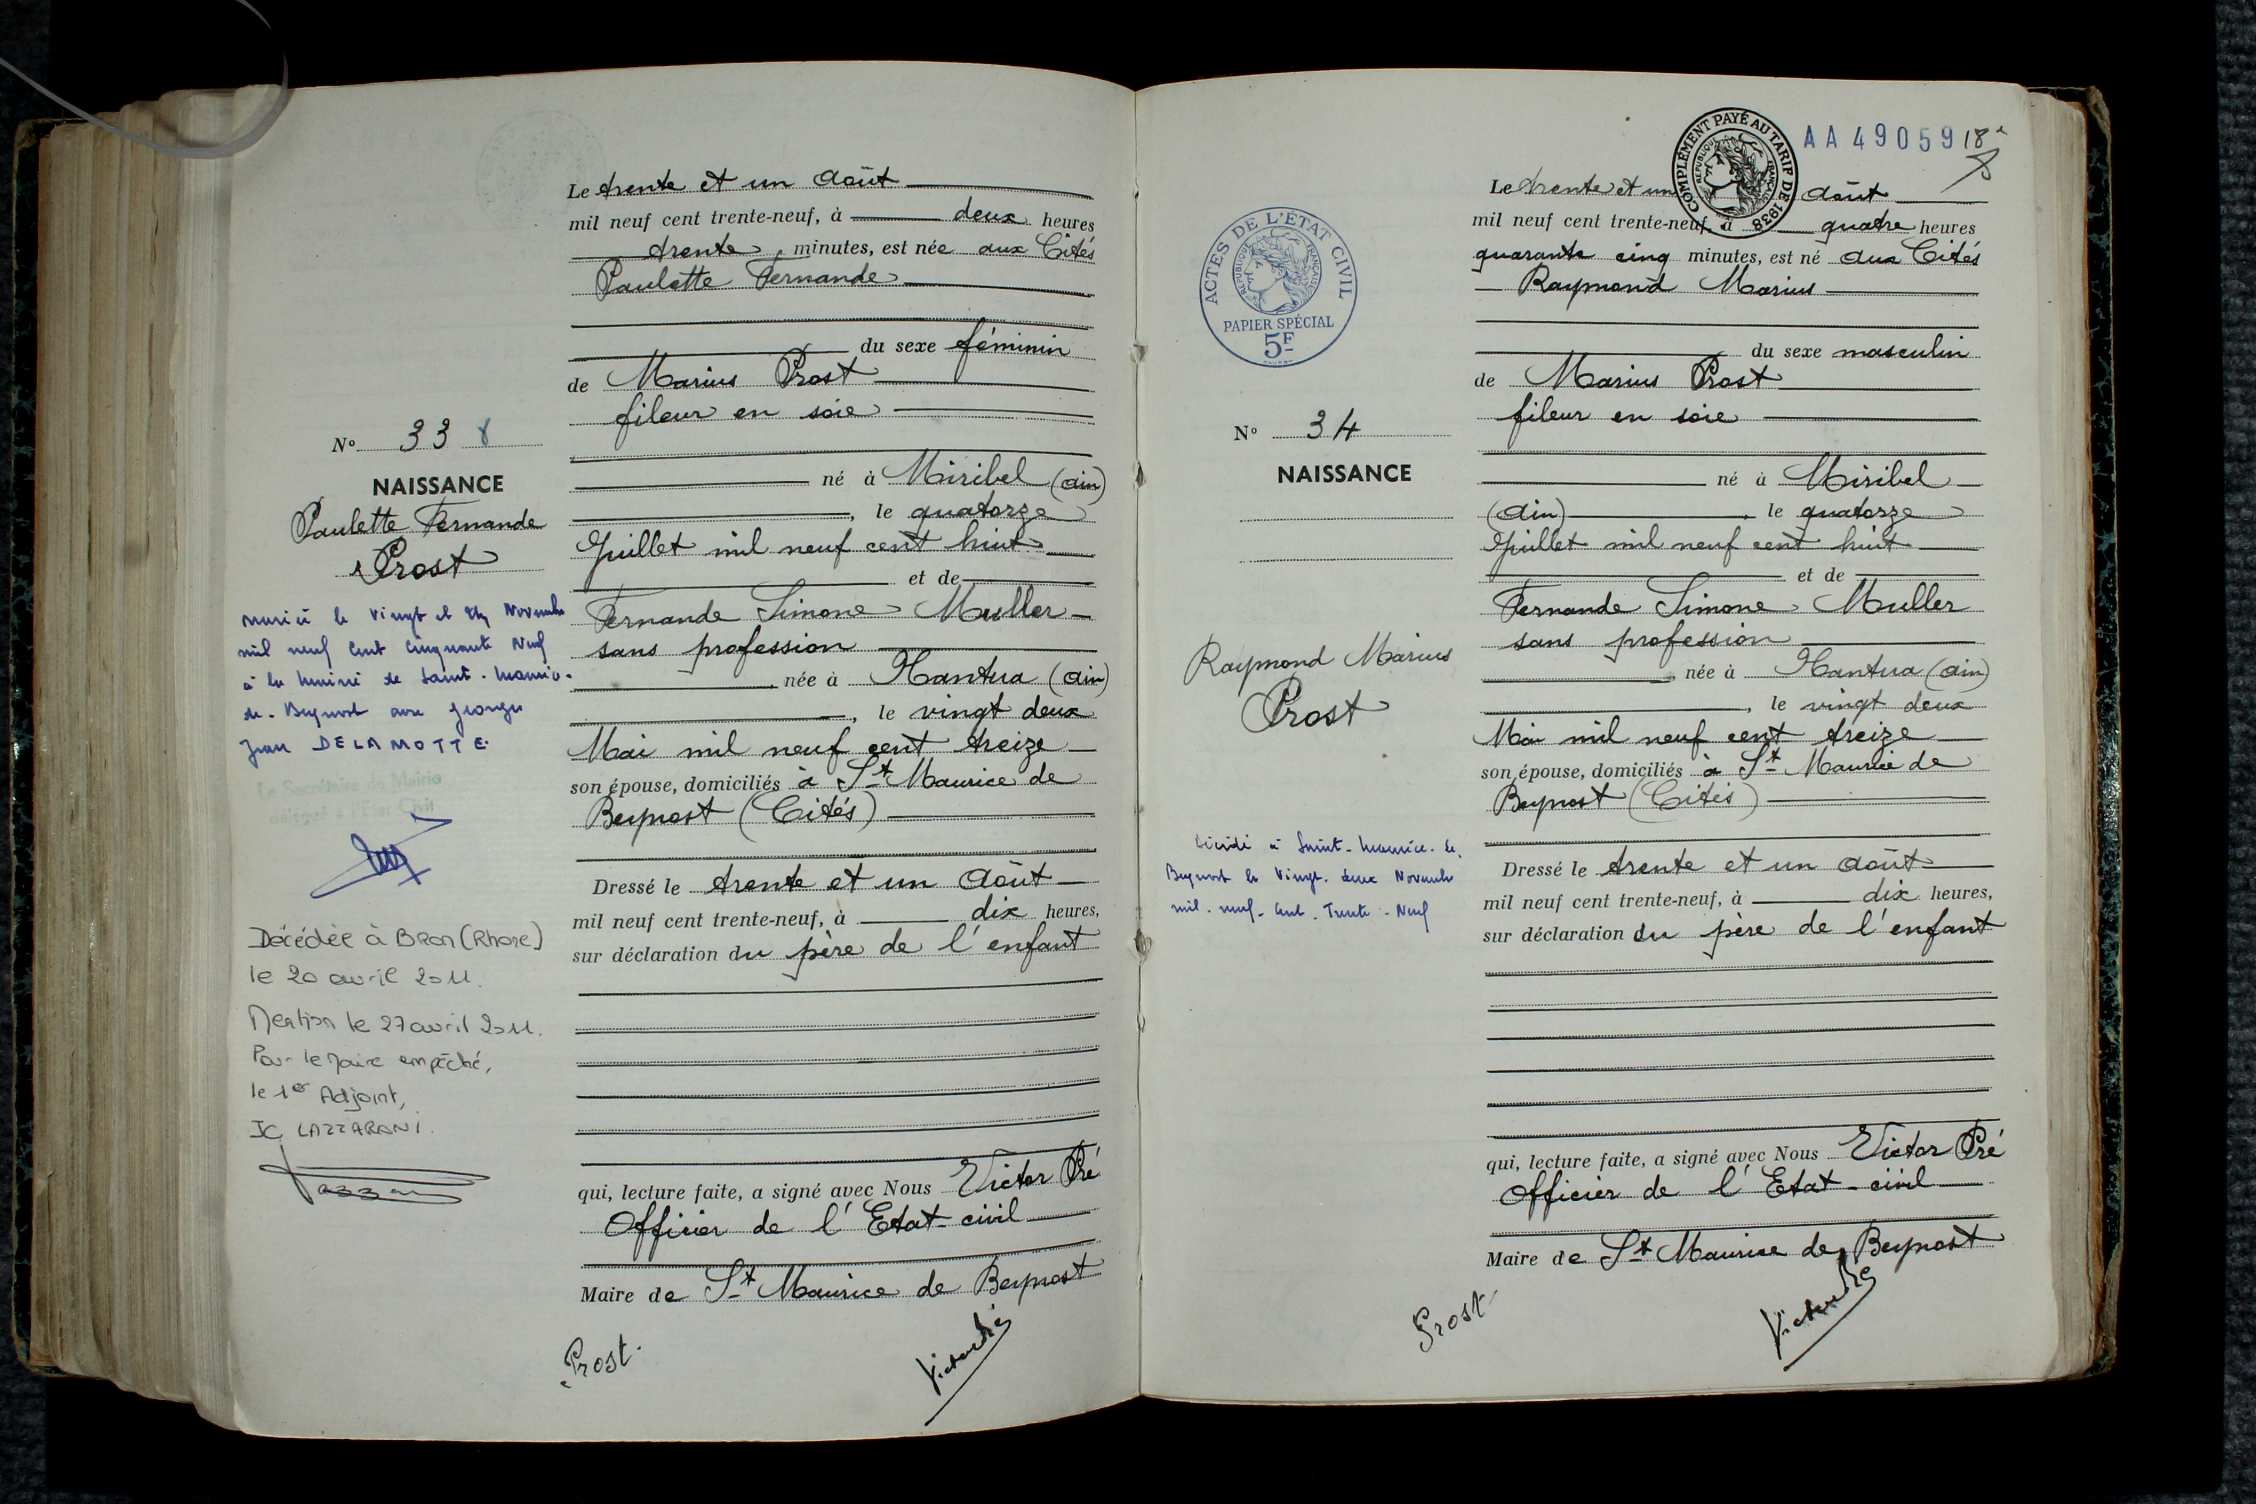 Le trente et un Août
mil neuf cent trente-neuf, à deux heures
trente minutes, est née aux Cités
Paulette Fernande
du sexe féminin
de Marius Prost
fileur en soie
né à Miribel (Ain)
, le quatorze
Juillet mil neuf cent huit
et de
Fernande Simone Muller
sans profession
née à Nantua (Ain)
, le vingt deux
Mai mil neuf cent treize
son épouse, domiciliés à St Maurice de
Beynost (Cités)
Dressé le trente et un Août
mil neuf cent trente-neuf, à dix heures,
sur déclaration du père de l'enfant
qui, lecture faite, a signé avec Nous Victor Pré
Officier de l'Etat-civil
Maire de St Maurice de Beynost
Prost
Victor Pré
No 33
NAISSANCE
Paulette Fernande
Prost
le vingt et Novembre
mil neuf cent cinquante neuf
à la mairie de Saint-Maurice-
de-Beynost avec Georges
Jean DELAMOTTE.
Le Secrétaire de Mairie
délégué à l'Etat Civil
Décédée à BRON (Rhone)
le 20 avril 2011.
Mention le 27 avril 2011.
Pour le Maire empêché,
le 1er Adjoint,
JC LAZZARONI.
AA 49059 18
COMPLÉMENT PAYÉ AU TARIF DE 1938
RÉPUBLIQUE FRANÇAISE
ACTES DE L'ETAT CIVIL
RÉPUBLIQUE FRANÇAISE
PAPIER SPÉCIAL
5F
Le trente et un Août
mil neuf cent trente-neuf, à quatre heures
quarante cinq minutes, est né aux Cités
Raymond Marius
du sexe masculin
de Marius Prost
fileur en soie
né à Miribel
(Ain) , le quatorze
Juillet mil neuf cent huit
et de
Fernande Simone Muller
sans profession
, née à Nantua (Ain)
, le vingt deux
Mai mil neuf cent treize
son épouse, domiciliés à St Maurice de
Beynost (Cités)
Dressé le trente et un Août
mil neuf cent trente-neuf, à dix heures,
sur déclaration du père de l'enfant
qui, lecture faite, a signé avec Nous Victor Pré
Officier de l'Etat-civil
Maire de St Maurice de Beynost
Prost
Victor Pré
No 34
NAISSANCE
Raymond Marius
Prost
Décédé à Saint-Maurice-de
Beynost le Vingt-deux Novembre
mil-neuf-Cent-Trente-Neuf